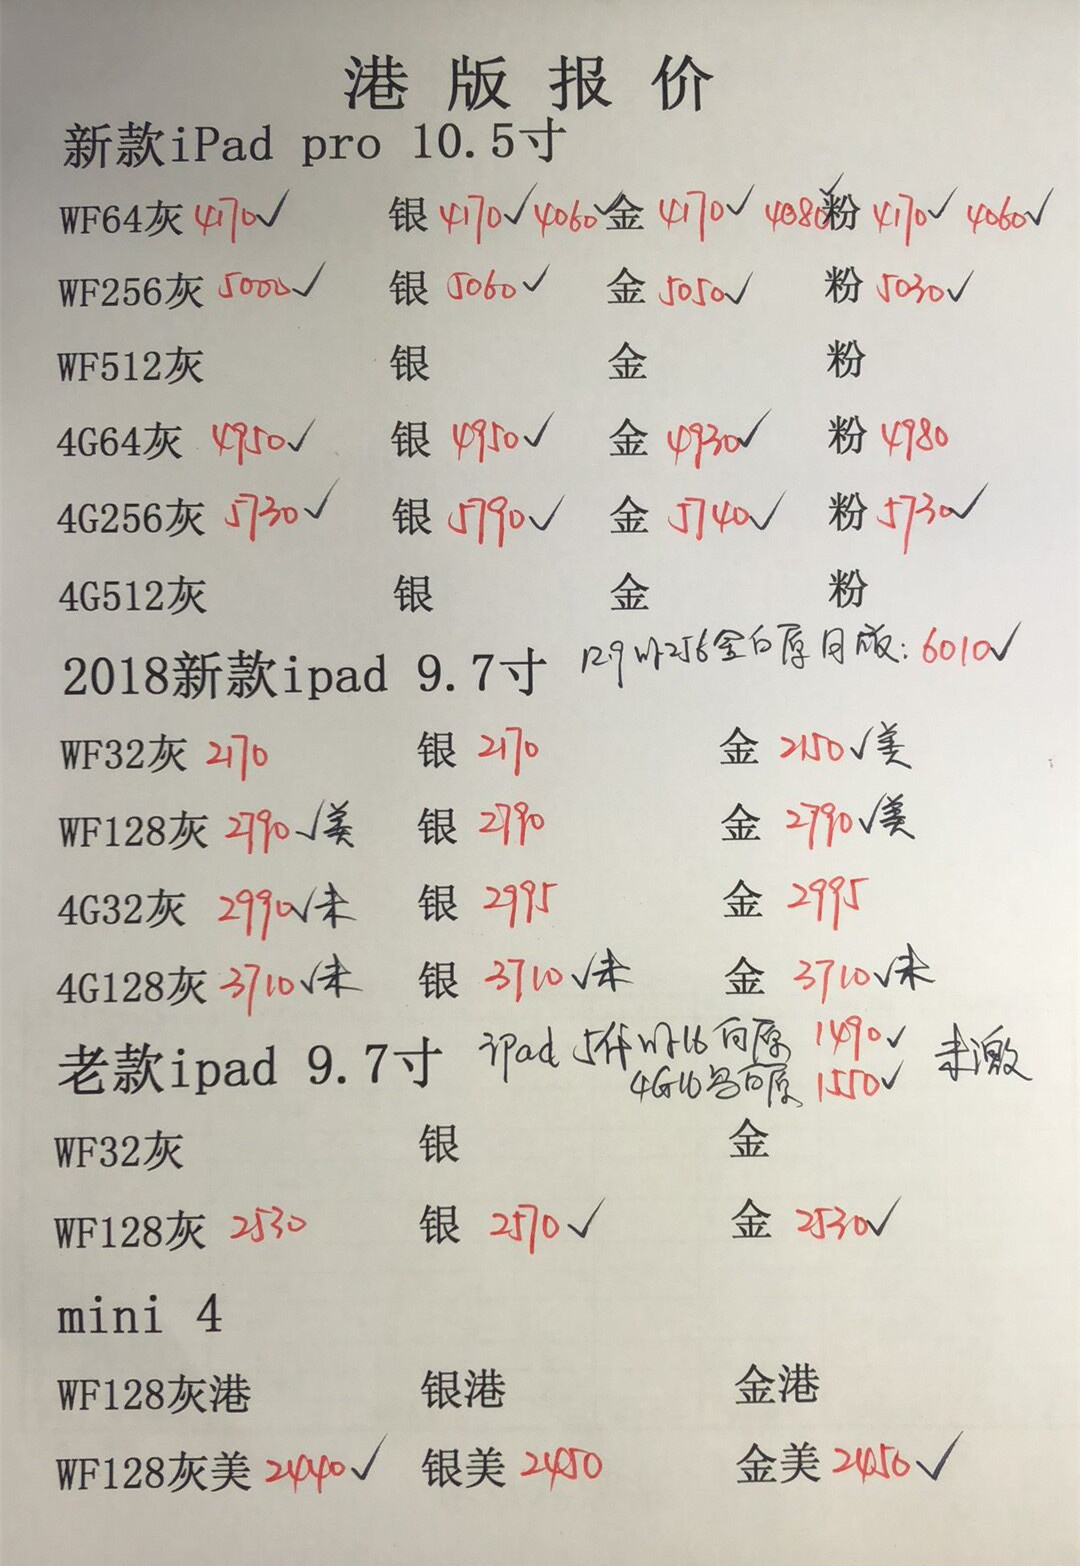 港版报价
新款iPad pro 10.5寸
WF64灰 4170✓ 银 4170✓ 4060✓ 金 4170✓ 4080✓ 粉 4170✓ 4060✓
WF256灰 5000✓ 银 5060✓ 金 5050✓ 粉 5030✓
WF512灰 银 金 粉
4G64灰 4950✓ 银 4950✓ 金 4930✓ 粉 4980
4G256灰 5730✓ 银 5790✓ 金 5740✓ 粉 5730✓
4G512灰 银 金 粉
2018新款ipad 9.7寸 12.9 wf256金白原日版：6010✓
WF32灰 2170 银 2170 金 2150✓美
WF128灰 2790✓美 银 2790 金 2790✓美
4G32灰 2990✓未 银 2995 金 2995
4G128灰 3710✓未 银 3710✓未 金 3710✓未
老款ipad 9.7寸 ipad 5代wf16白原 1490✓ 未激
4G16 白原 1550✓
WF32灰 银 金
WF128灰 2530 银 2570✓ 金 2530✓
mini 4
WF128灰港 银港 金港
WF128灰美 2440✓ 银美 2450 金美 2450✓